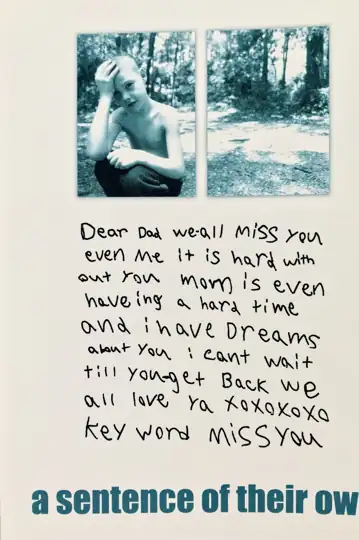 Dear Dad we-all Miss you
even Me it is hard with
out you mom is even
haveing a hard time
and i have Dreams
about you i cant wait
till you-get Back we
all love ya xoxoxoxo
key word Miss you
a sentence of their ow